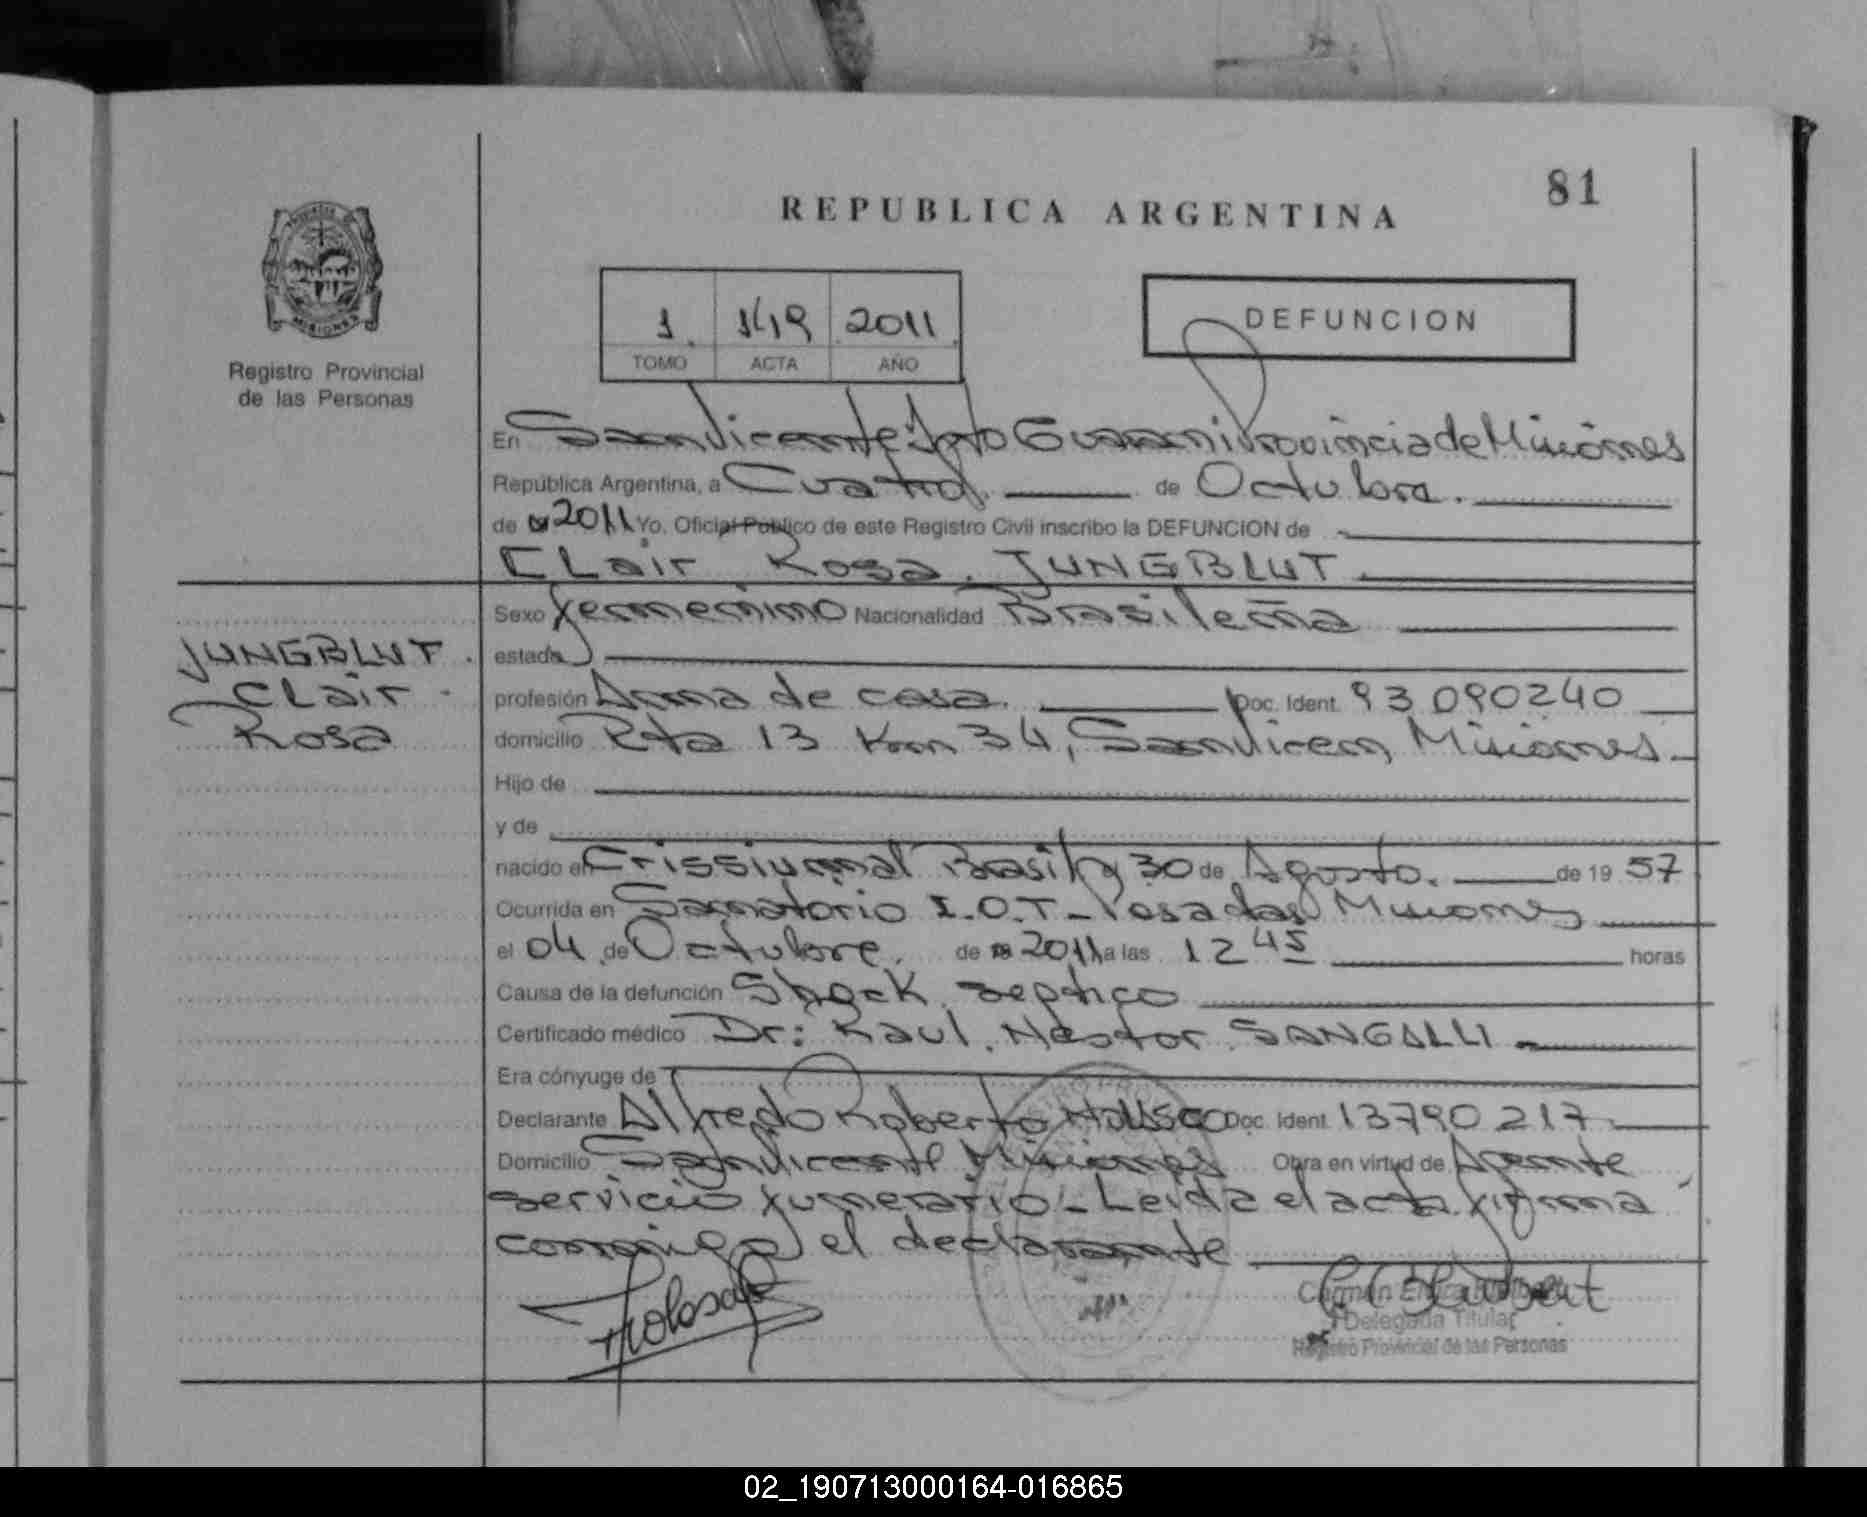 81
REPUBLICA ARGENTINA
MISIONES
Registro Provincial
de las Personas
1 149 2011
TOMO ACTA AÑO
DEFUNCION
En San Vicente, Dpto Guarani Provincia de Misiones
República Argentina, a Cuatro de Octubre.
de 2011 Yo. Oficial Público de este Registro Civil inscribo la DEFUNCION de
CLair Rosa JUNGBLUT
JUNGBLUT
CLair
Rosa
Sexo femenino Nacionalidad Brasileña
estado
profesión Ama de casa. Doc. Ident. 93 090240
domicilio Rta 13 Km 34, San Vicen, Misiones.
Hijo de
y de
nacido en Crissiumal Brasil, 30 de Agosto. de 19 57
Ocurrida en Sanatorio I.O.T - Posadas Misiones
el 04 de Octubre. de 2011 a las 12 45 horas
Causa de la defunción Shock septico
Certificado médico Dr: Raul. Nestor SANGALLI
Era cónyuge de
Declarante Alfredo Roberto Doc. Ident. 13790 217
Domicilio San Vicente Misiones Obra en virtud de Agente
servicio funerario - Leida el acta firma
conmigo el declarante
Carmen
Delegada Titular
Registro Provincial de las Personas
02_190713000164-016865